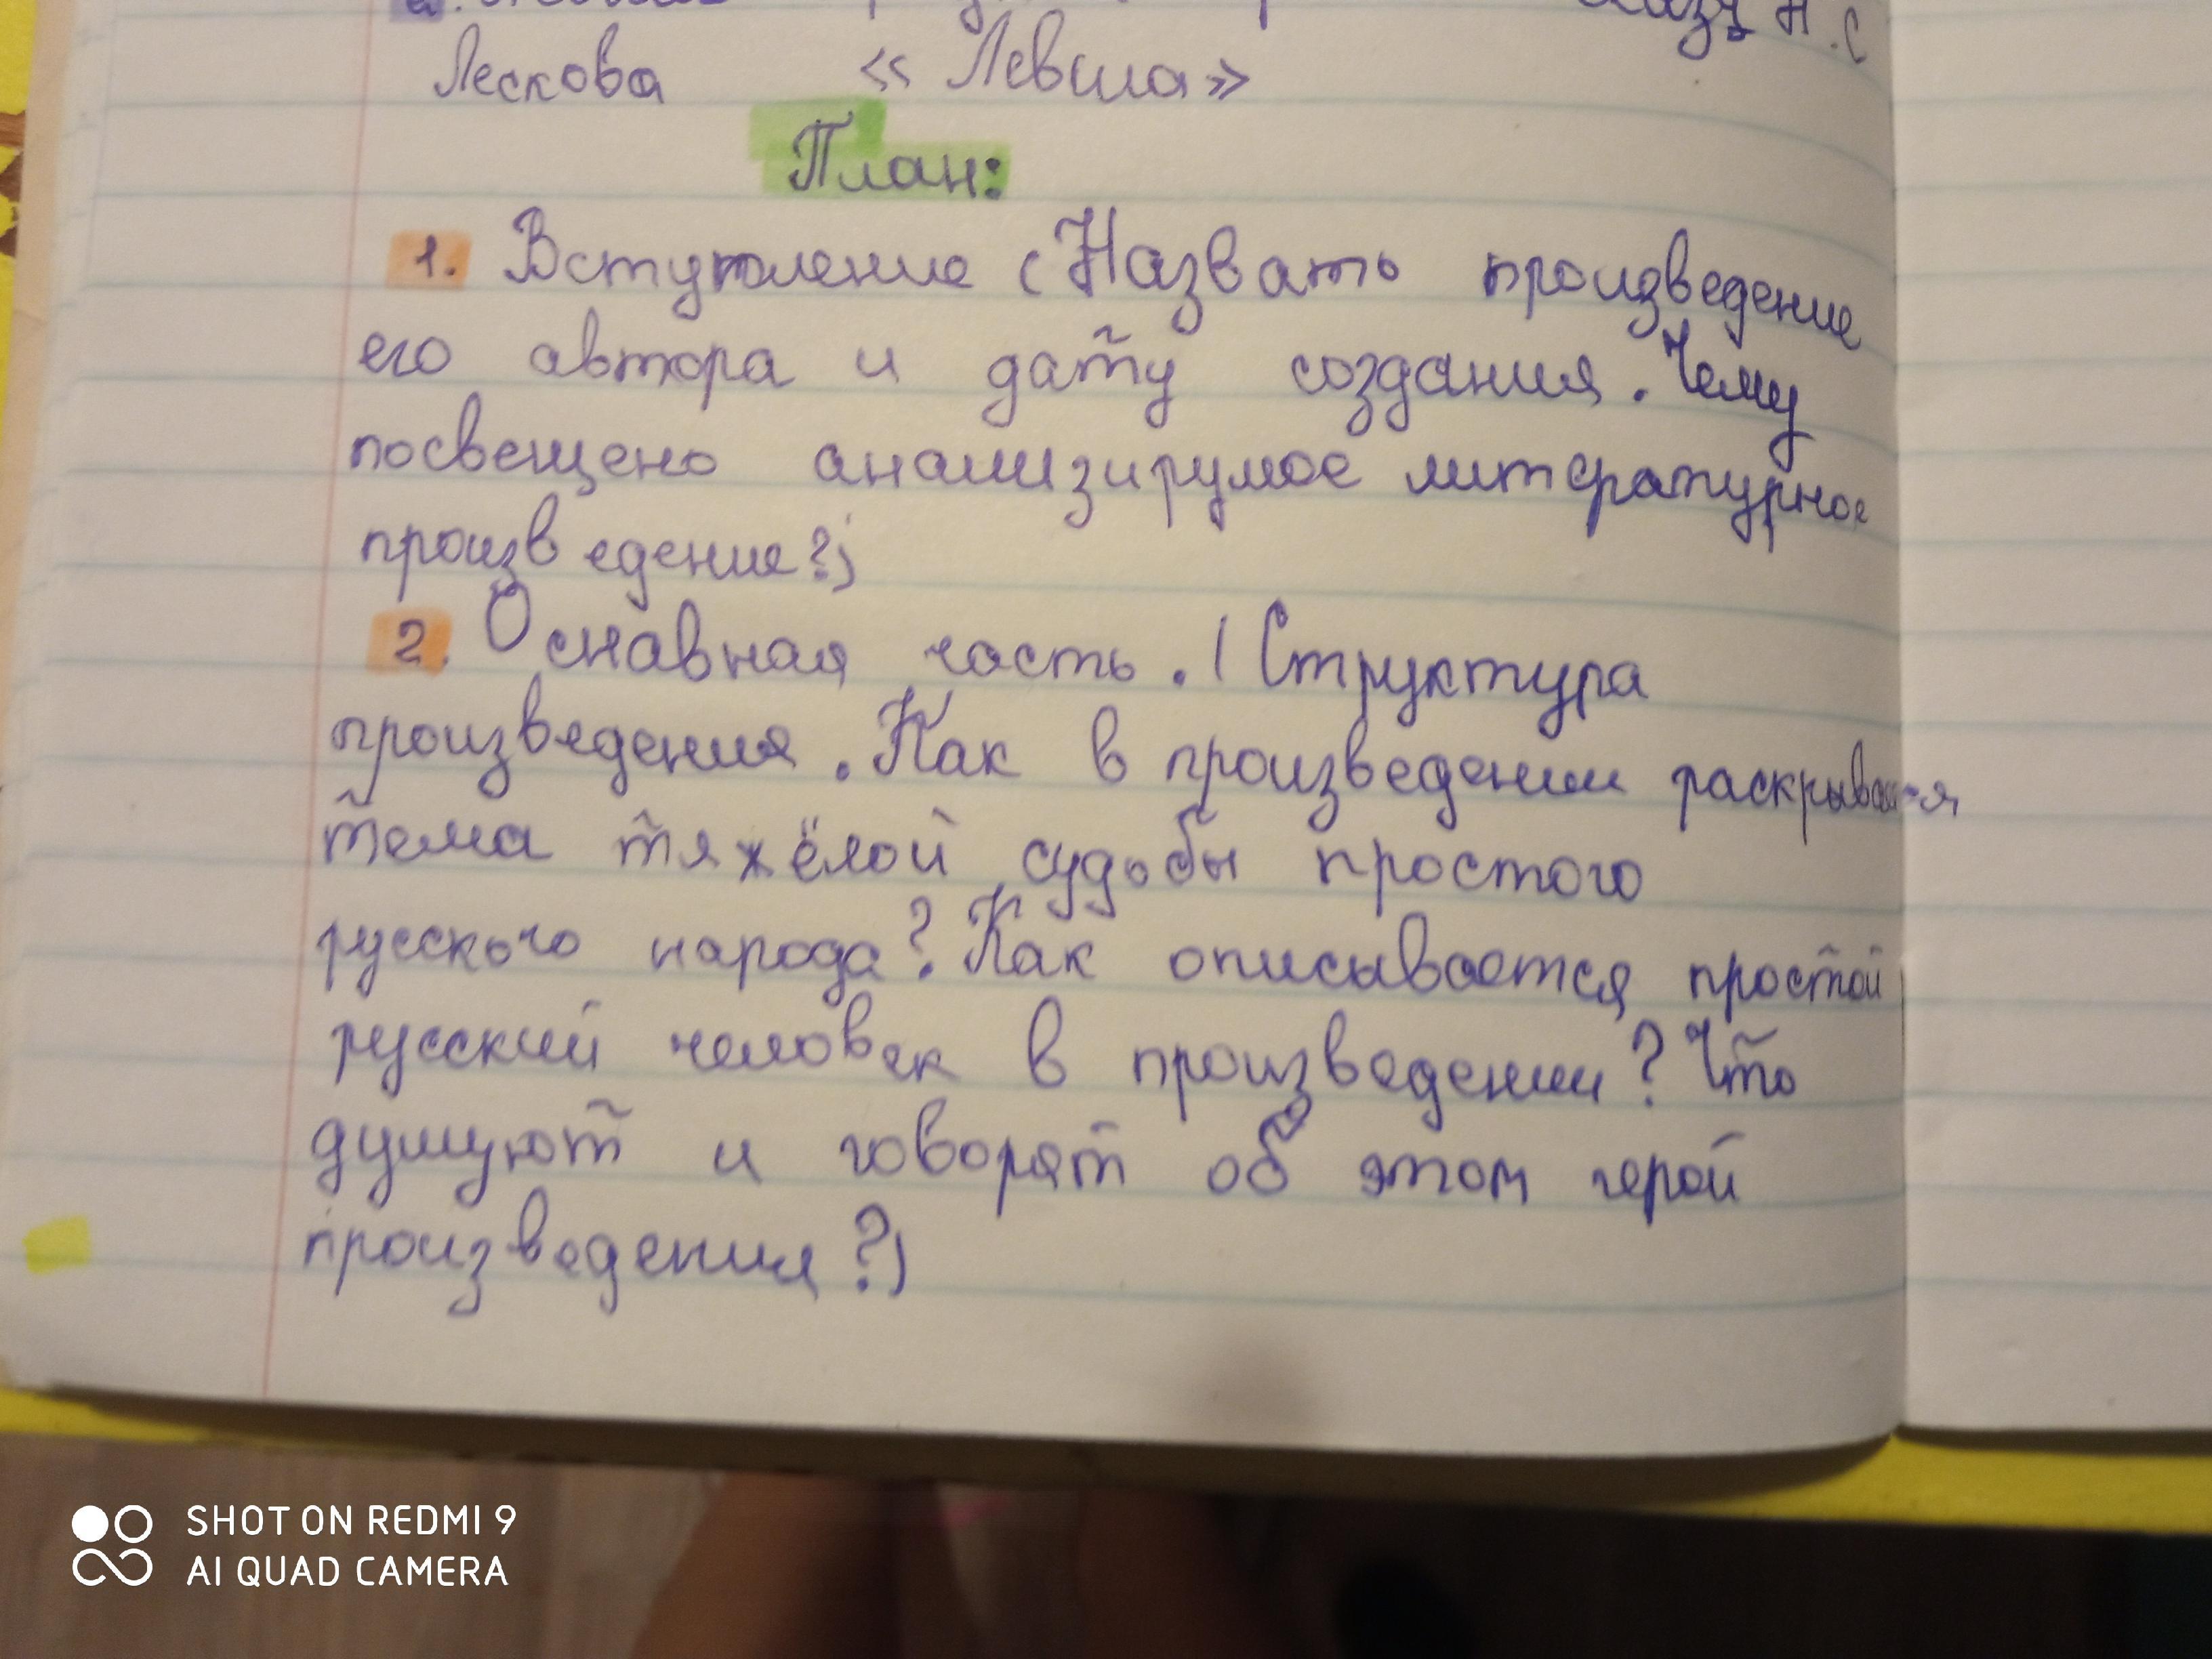 Лескова « Левша»
План:
1. Вступление (Назвать произведение
его автора и дату создания. Чему
посвещено анализирумое литературное
произведение?)
2. Оснавная часть. (Структура
произведения. Как в произведении раскрывается
тема тяжёлой судьбы простого
русского народа? Как описывается простой
русский человек в произведении? Что
думуют и говорят об этом герой
произведения?)
SHOT ON REDMI 9
AI QUAD CAMERA